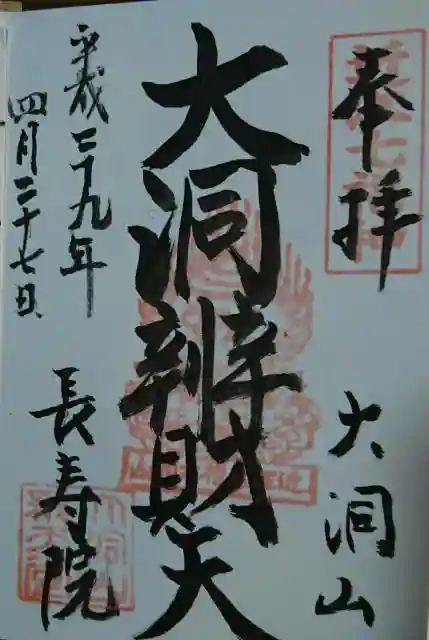 奉拝
大洞山
大洞辨財天
平成二十九年
四月二十七日
長寿院